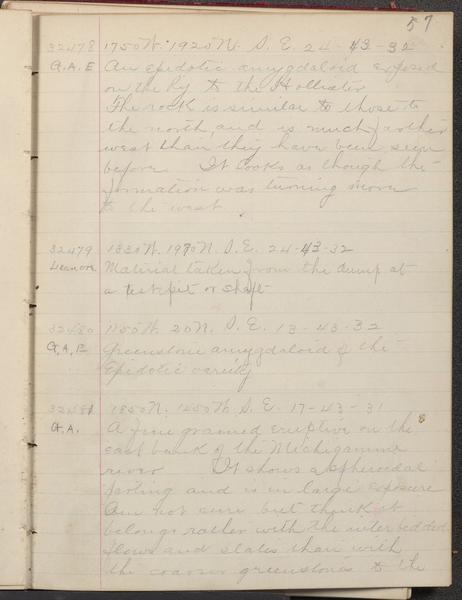 57
32478 1750W. 1920N. S. E. 24-43-32
G.A.E An epidotic amygdaloid exposed
on the Ry to the Hollister
The rock is similar to those to
the north and is much farther
west than they have been seen
before It looks as though the
formation was turning more
to the west
32479 1830W. 1970N. S.E. 24-43-32
Material taken from the dump at
a testpit or shaft
32480 1150W. 20N. S.E. 13-43-32
G.A.E Greenstone amygdaloid of the
Epidotic verity
32481 1850N. 1450W. S.E. 17-43-31
G.A. A fine grained eruptive on the
east bank of the Michigamme
river It shows a spheroidal
parting and is in large exposure
Am not sure but think it
belongs rather with the interbedded
flows and slates than with
the coarser greenstones to the